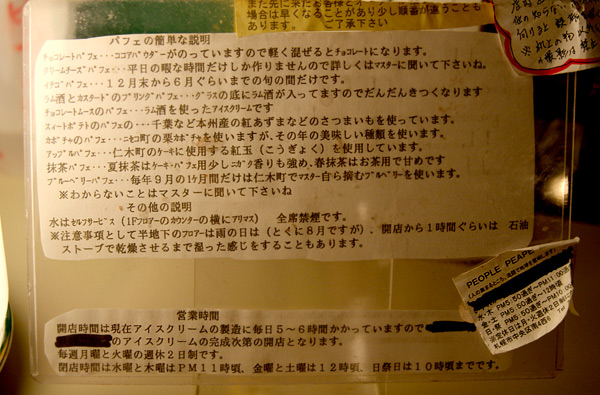 また先に来たお客様とオ
場合は早くなることがあり少し順番が違うことも
あります。ご了承下さい
パフェの簡単な説明
チョコレートパフェ・・・ココアパウダーがのっていますので軽く混ぜるとチョコレートになります。
クリームチーズパフェ・・・平日の暇な時間だけしか作りませんので詳しくはマスターに聞いて下さいね。
イチゴパフェ・・・12月末から6月ぐらいまでの旬の間だけです。
ラム酒とカスタードのプリングパフェ・・・グラスの底にラム酒が入ってますのでだんだんきつくなります
チョコレートムースのパフェ・・・ラム酒を使ったアイスクリームです
スィートポテトのパフェの・・・千葉など本州産の紅あずまなどのさつまいもを使っています。
カボチャのパフェ・・・ニセコ町の栗カボチャを使いますが、その年の美味しい種類を使います。
アップルパフェ・・・仁木町のケーキに使用する紅玉（こうぎょく）を使用しています。
抹茶パフェ・・・夏抹茶はケーキ・パフェ用少しニガク香りも強め、春抹茶はお茶用で甘めです
ブルーベリーパフェ・・・毎年9月の1ケ月間だけは仁木町でマスター自ら摘むブルベリーを使います。
※わからないことはマスターに聞いて下さいね
その他の説明
水はセルフサービス（1Fフロアーのカウンターの横にアリマス） 全席禁煙です。
※注意事項として半地下のフロアーは雨の日は（とくに8月ですが）、開店から1時間ぐらいは 石油
ストーブで乾燥させるまで湿った感じをすることもあります。
PEOPLE PEAPE
水・木 PM5:50過ぎ〜PM11:00
金・土 PM5:50過ぎ〜12時
日・祭 PM5:50過ぎ〜PM10:00
※定休日は月・火
札幌市中央区南4西
営業時間
開店時間は現在アイスクリームの製造に毎日5〜6時間かかっていますので
のアイスクリームの完成次第の開店となります。
毎週月曜と火曜の週休2日制です。
閉店時間は水曜と木曜はPM11時頃、金曜と土曜は12時頃、日祭日は10時頃までです。